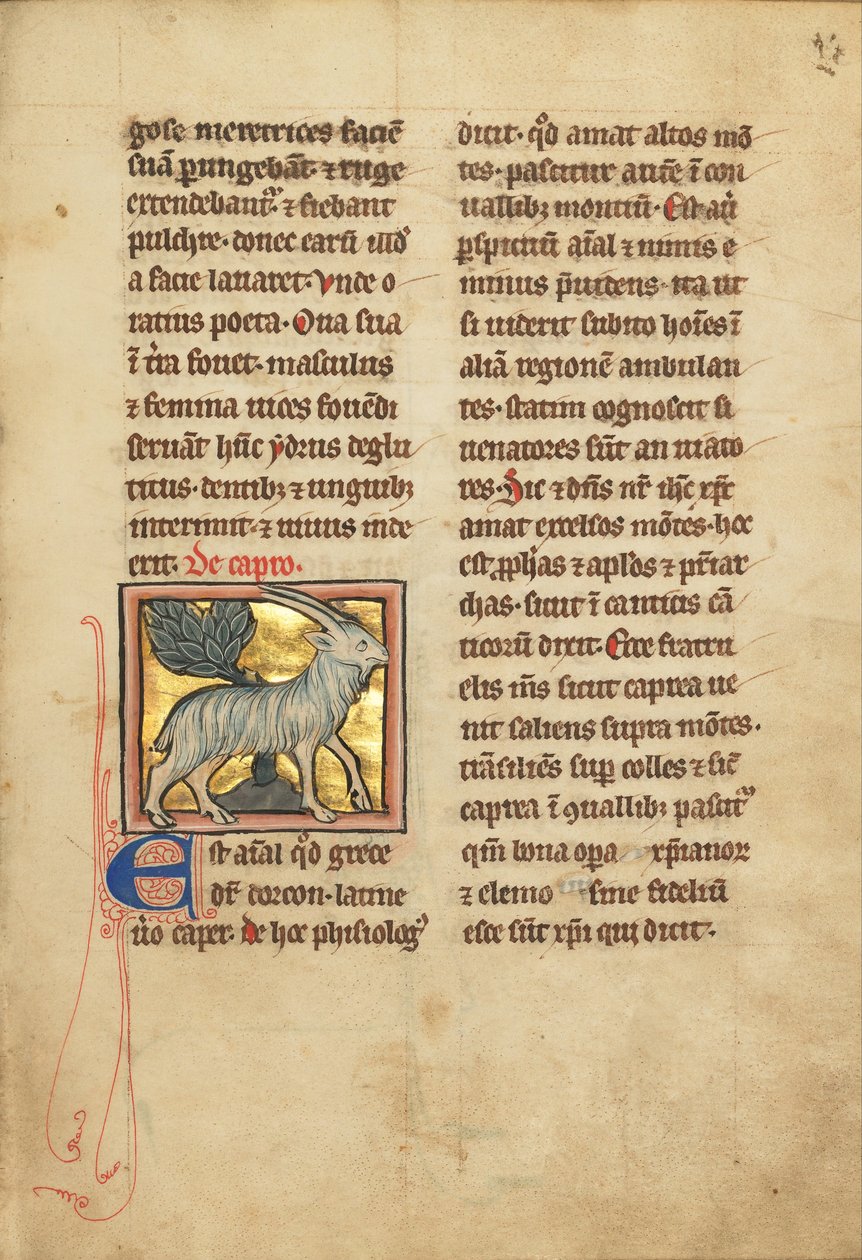 gose meretrices faciē
suā ꝑungebāt· ⁊ ruge
extendebant᷑· ⁊ fiebant
pulchre· donec earū
a facie lauaret· Vnde o
ratius poeta· Oua sua
ī t̄ra fouet· masculus
⁊ femina uices fouēdi
seruāt hūc ydrus deglu
titus· dentibꝫ ⁊ unguibꝫ
interimit· ⁊ uiuus inde
erit· De capro·
Est aīal qd̄ grece
dr̄ dorcon· latine
ūo caper· de hoc phisiologꝰ
dicit· qd̄ amat altos mō
tes· pascitur autē ī con
uallibꝫ montiū· Est aū
ꝑspicuū aīal ⁊ nimis e
minus p̄uidens· ita ut
si uiderit subito hoīes ī
aliā regionē ambulan
tes· statim cognoscit si
uenatores sūt an uiato
res· Sic ⁊ dn̄s nr̄ ihc̄ xp̄c
amat excelsos mōtes· hoc
est ꝓph̄as ⁊ apl̄os ⁊ pr̄iar
chas· sicut ī canticis cā
ticorū dixit· Ecce fratru
elis m̄s sicut caprea ue
nit saliens supra mōtes·
trāsiliēs suꝑ colles ⁊ sic̄
caprea ī ꝯuallibꝫ pascit᷑
qm̄ bona oꝑa xp̄ianoꝝ
⁊ elemo sine fideliū
esce sūt xp̄i qui dicit·